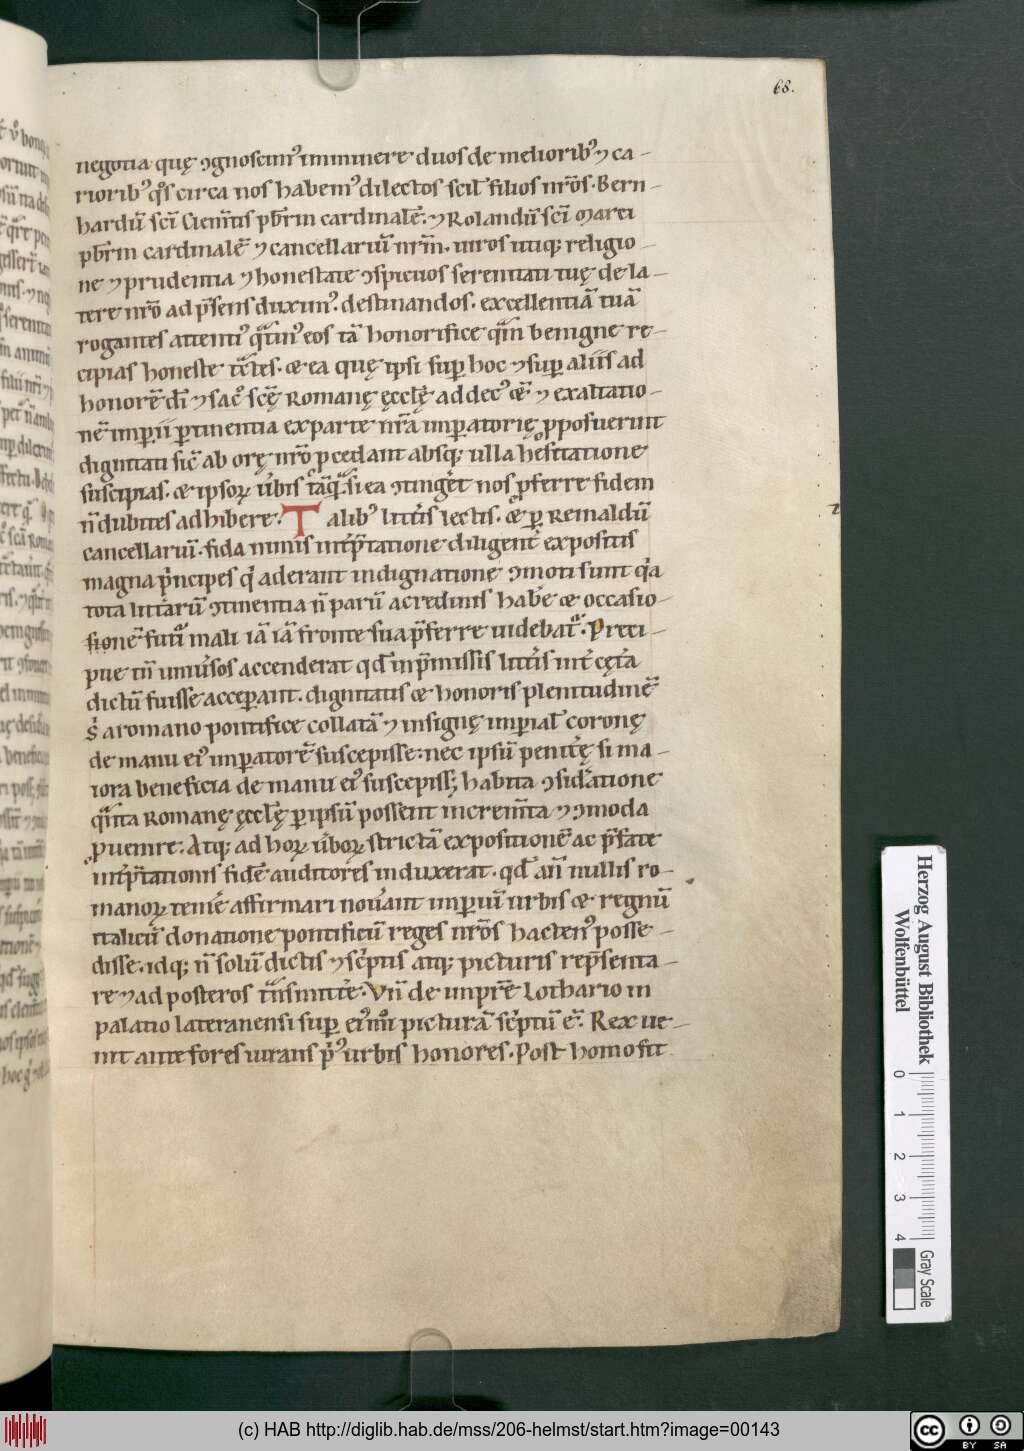 68.
negotia quę ꝯgnoscim᷒ imminere duos de melioribꝰ ⁊ ca-
rioribꝰ qͦs circa nos habemꝰ dilectos scil̄ filios nr̄os. Bern-
hardū sc̄i Clem̄tis pbr̄m cardinalē. ⁊ Rolandū sc̄i Marci
pbr̄m cardinalē ⁊ cancellariū nr̄m. uiros utiq; religio-
ne ⁊ prudentia ⁊ honestate ꝯspicuos serenitati tuę de la-
tere nr̄o ad p̄sens duximꝰ destinandos. excellentiā tuā
rogantes attentiꝰ qᷓtinꝰ eos tā honorifice qᷓm benigne re-
cipias honeste tc̄tes. & ea quę ipsi sup̱ hoc ⁊ sup̱ aliis ad
honorē dī ⁊ sac̊ sc̄ę Romanę ęccl̄ę ad decꝰ &̄ ⁊ exaltatio-
nē imp̱ii p̱tinentia ex parte nr̄a imp̱atorię ꝓposuerint
dignitati sic̄ ab orę nr̄o ꝓcedant absq; ulla hesitatione
suscipias. & ipsoꝝ ūbis tāqᷓ si ea ꝯtinḡet nos ꝓferre fidem
n̄ dubites adhibere. Talibꝰ litt̄is lectis. &̊ p̱ Reinaldū
cancellariū. fida nimis int̄p̄tatione diligent̄ expositis
magna pͥncipes qͥ aderant indignatione ꝯmoti sunt qͥa
tota litt̄arū ꝯtinentia n̄ parū acredinis hab̄e & occasio-
sionē futuͥ mali iā iā fronte sua p̄ferre uidebatᷣ. Preci-
pue tn̄ uniūsos accenderat qd̄ in p̄missis litt̄is int̄ cęt̄a
dictū fuisse accep̱ant. dignitatis & honoris plenitudinē
s̄ a romano pontifice collatā ⁊ insignę imp̱ial̄ coronę
de manu eiꝰ imp̱atorē suscepisse. nec ipsū penit̄ę si ma-
iora beneficia de manu eiꝰ suscepiss; habita ꝯsid̄atione
qᷓnta Romanę ęccl̄ę p̱ ipsū possent increm̄ta ⁊ ꝯmoda
ꝓuenire. Atq; ad hoꝝ ūboꝝ strictā expositionē ac p̄fate
int̄p̄tationis fidē auditores induxerat. qd̄ a n̄ nullis ro-
manoꝝ tem̄e affirmari nou̅ant imp̱iū urbis & regnū
italicū donatione pontificū reges nr̄os hactenꝰ posse-
disse. idq; n̄ solū dictis ⁊ scͥptis atq; picturis rep̄senta-
re ⁊ ad posteros tᷓnsmitt̄e. Vn̄ de imp̱r̄e Lothario in
palatio lateranensi sup̱ eiꝰmͦi picturā scͥptū ē. Rex ue-
nit ante fores iurans pͥꝰ urbis honores. Post homo fit
Herzog August Bibliothek
Wolfenbüttel
0 1 2 3 4
Gray Scale
(c) HAB http://diglib.hab.de/mss/206-helmst/start.htm?image=00143
cc BY SA